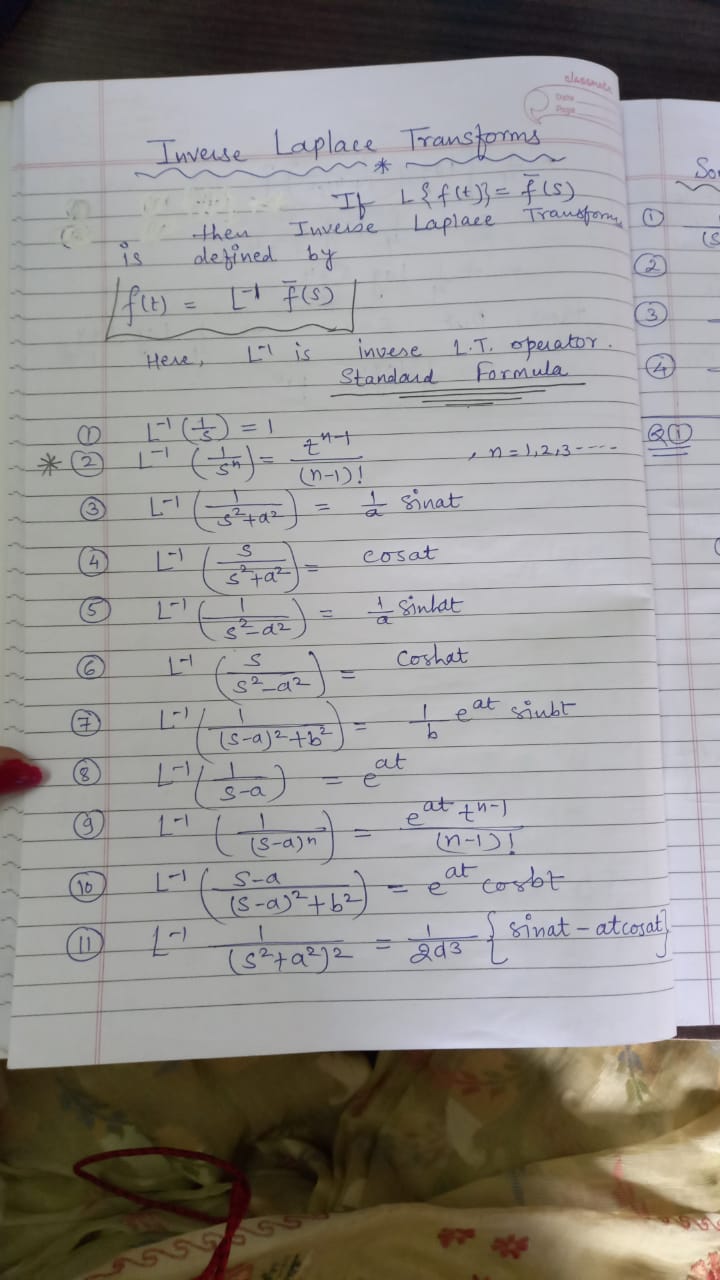 classmate
Date
Page
Inverse Laplace Transforms
*
If L{f(t)} = f̄(s)
then Inverse Laplace Transforms
is defined by
f(t) = L⁻¹ f̄(s)
Here, L⁻¹ is invese L.T. operator.
Standard Formula
① L⁻¹(1/s) = 1
* ② L⁻¹(1/sⁿ) = tⁿ⁻¹/(n-1)! , n = 1,2,3-----
③ L⁻¹(1/(s²+a²)) = 1/a sinat
④ L⁻¹(s/(s²+a²)) = cosat
⑤ L⁻¹(1/(s²-a²)) = 1/a sinhat
⑥ L⁻¹(s/(s²-a²)) = coshat
⑦ L⁻¹(1/((s-a)²+b²)) = 1/b e^at sinbt
⑧ L⁻¹(1/(s-a)) = e^at
⑨ L⁻¹(1/(s-a)ⁿ) = e^at tⁿ⁻¹/(n-1)!
⑩ L⁻¹((s-a)/((s-a)²+b²)) = e^at cosbt
⑪ L⁻¹ 1/(s²+a²)² = 1/2a3 {sinat - atcosat}
①
②
③
④
Q①